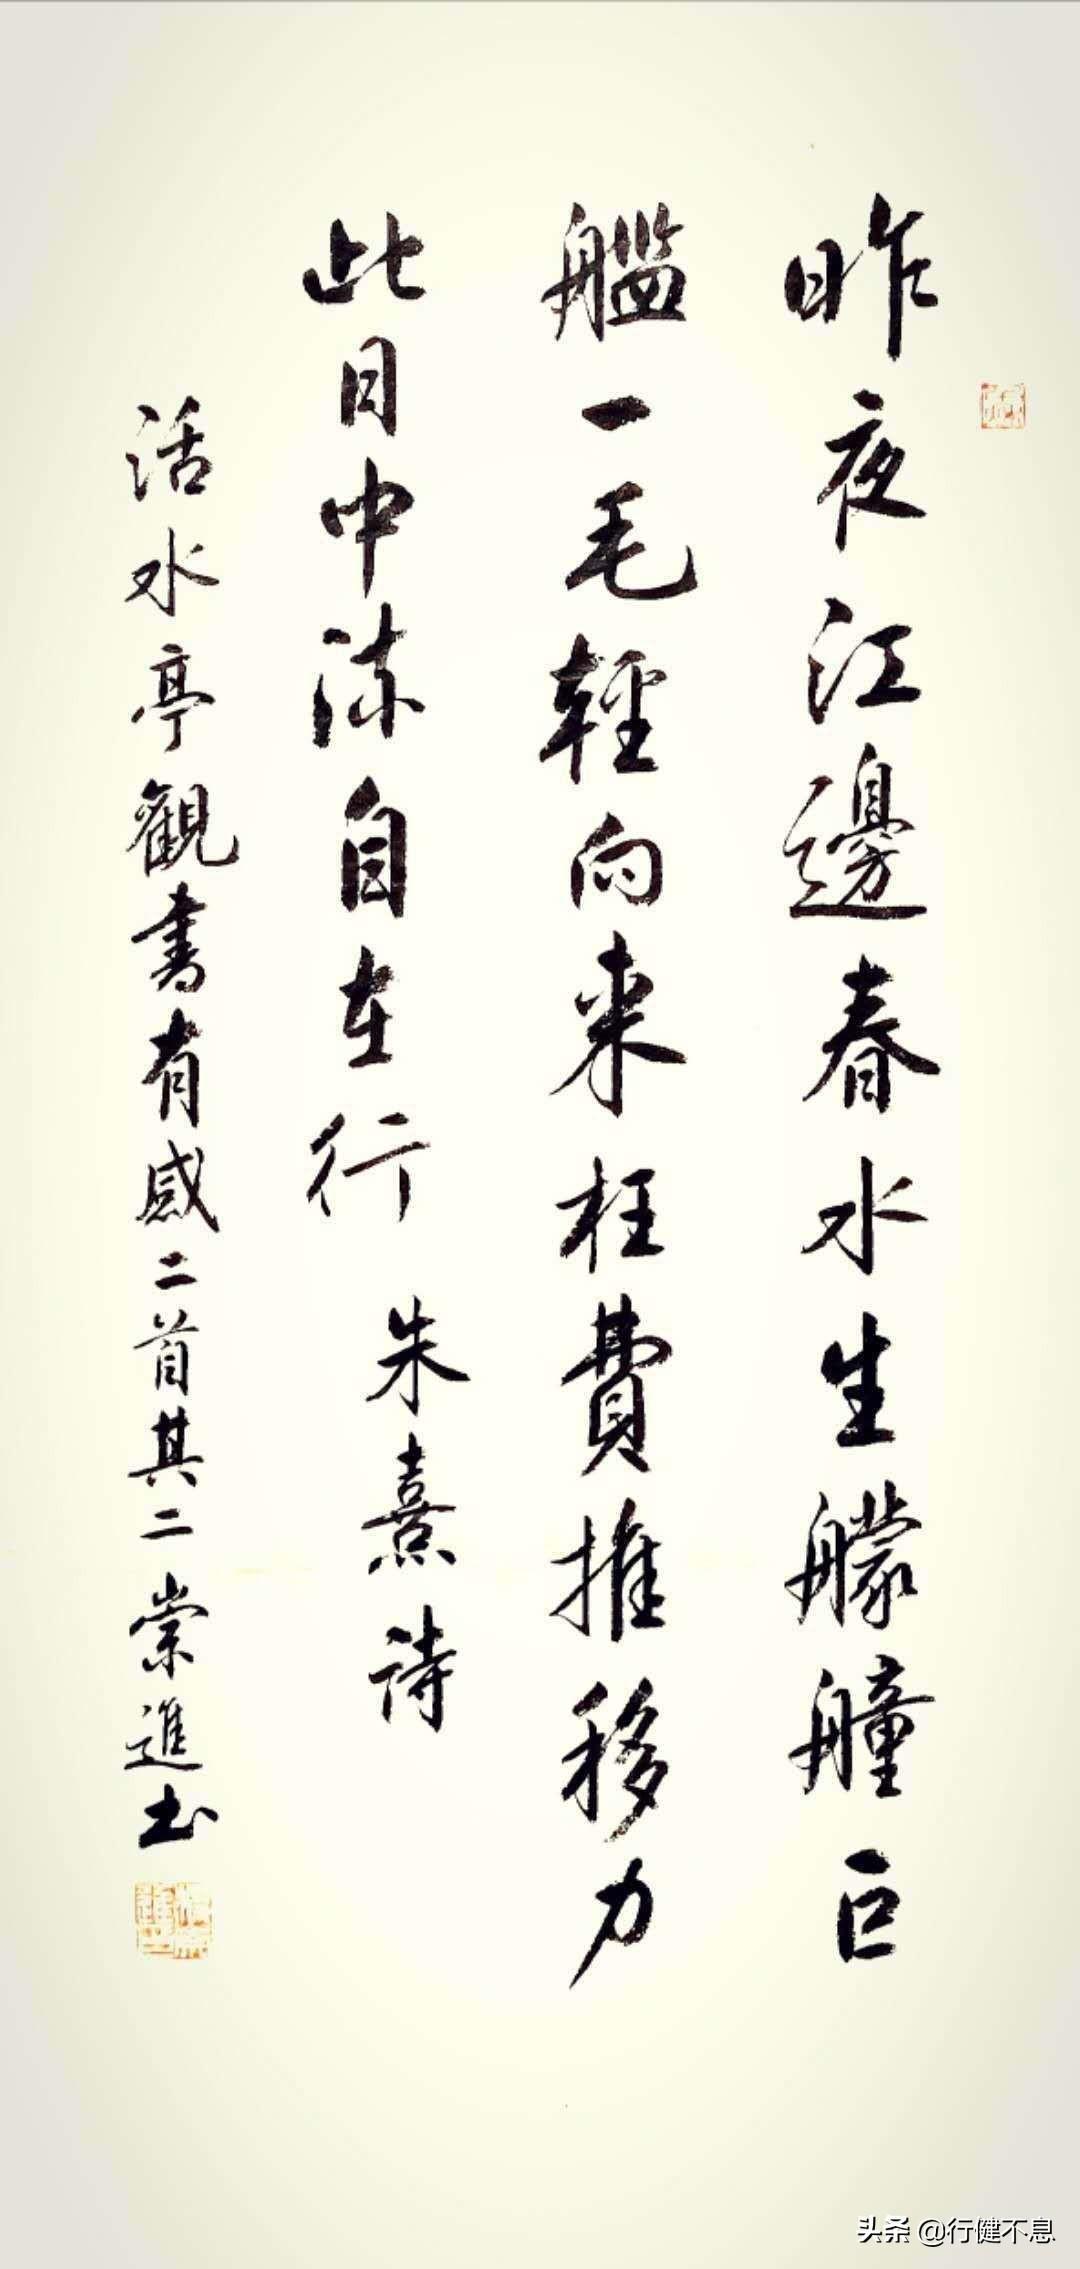 昨夜江邊春水生艨艟巨
艦一毛輕向来枉費推移力
此日中流自在行 朱熹詩
活水亭觀書有感二首其二 崇進书
头条 @行健不息